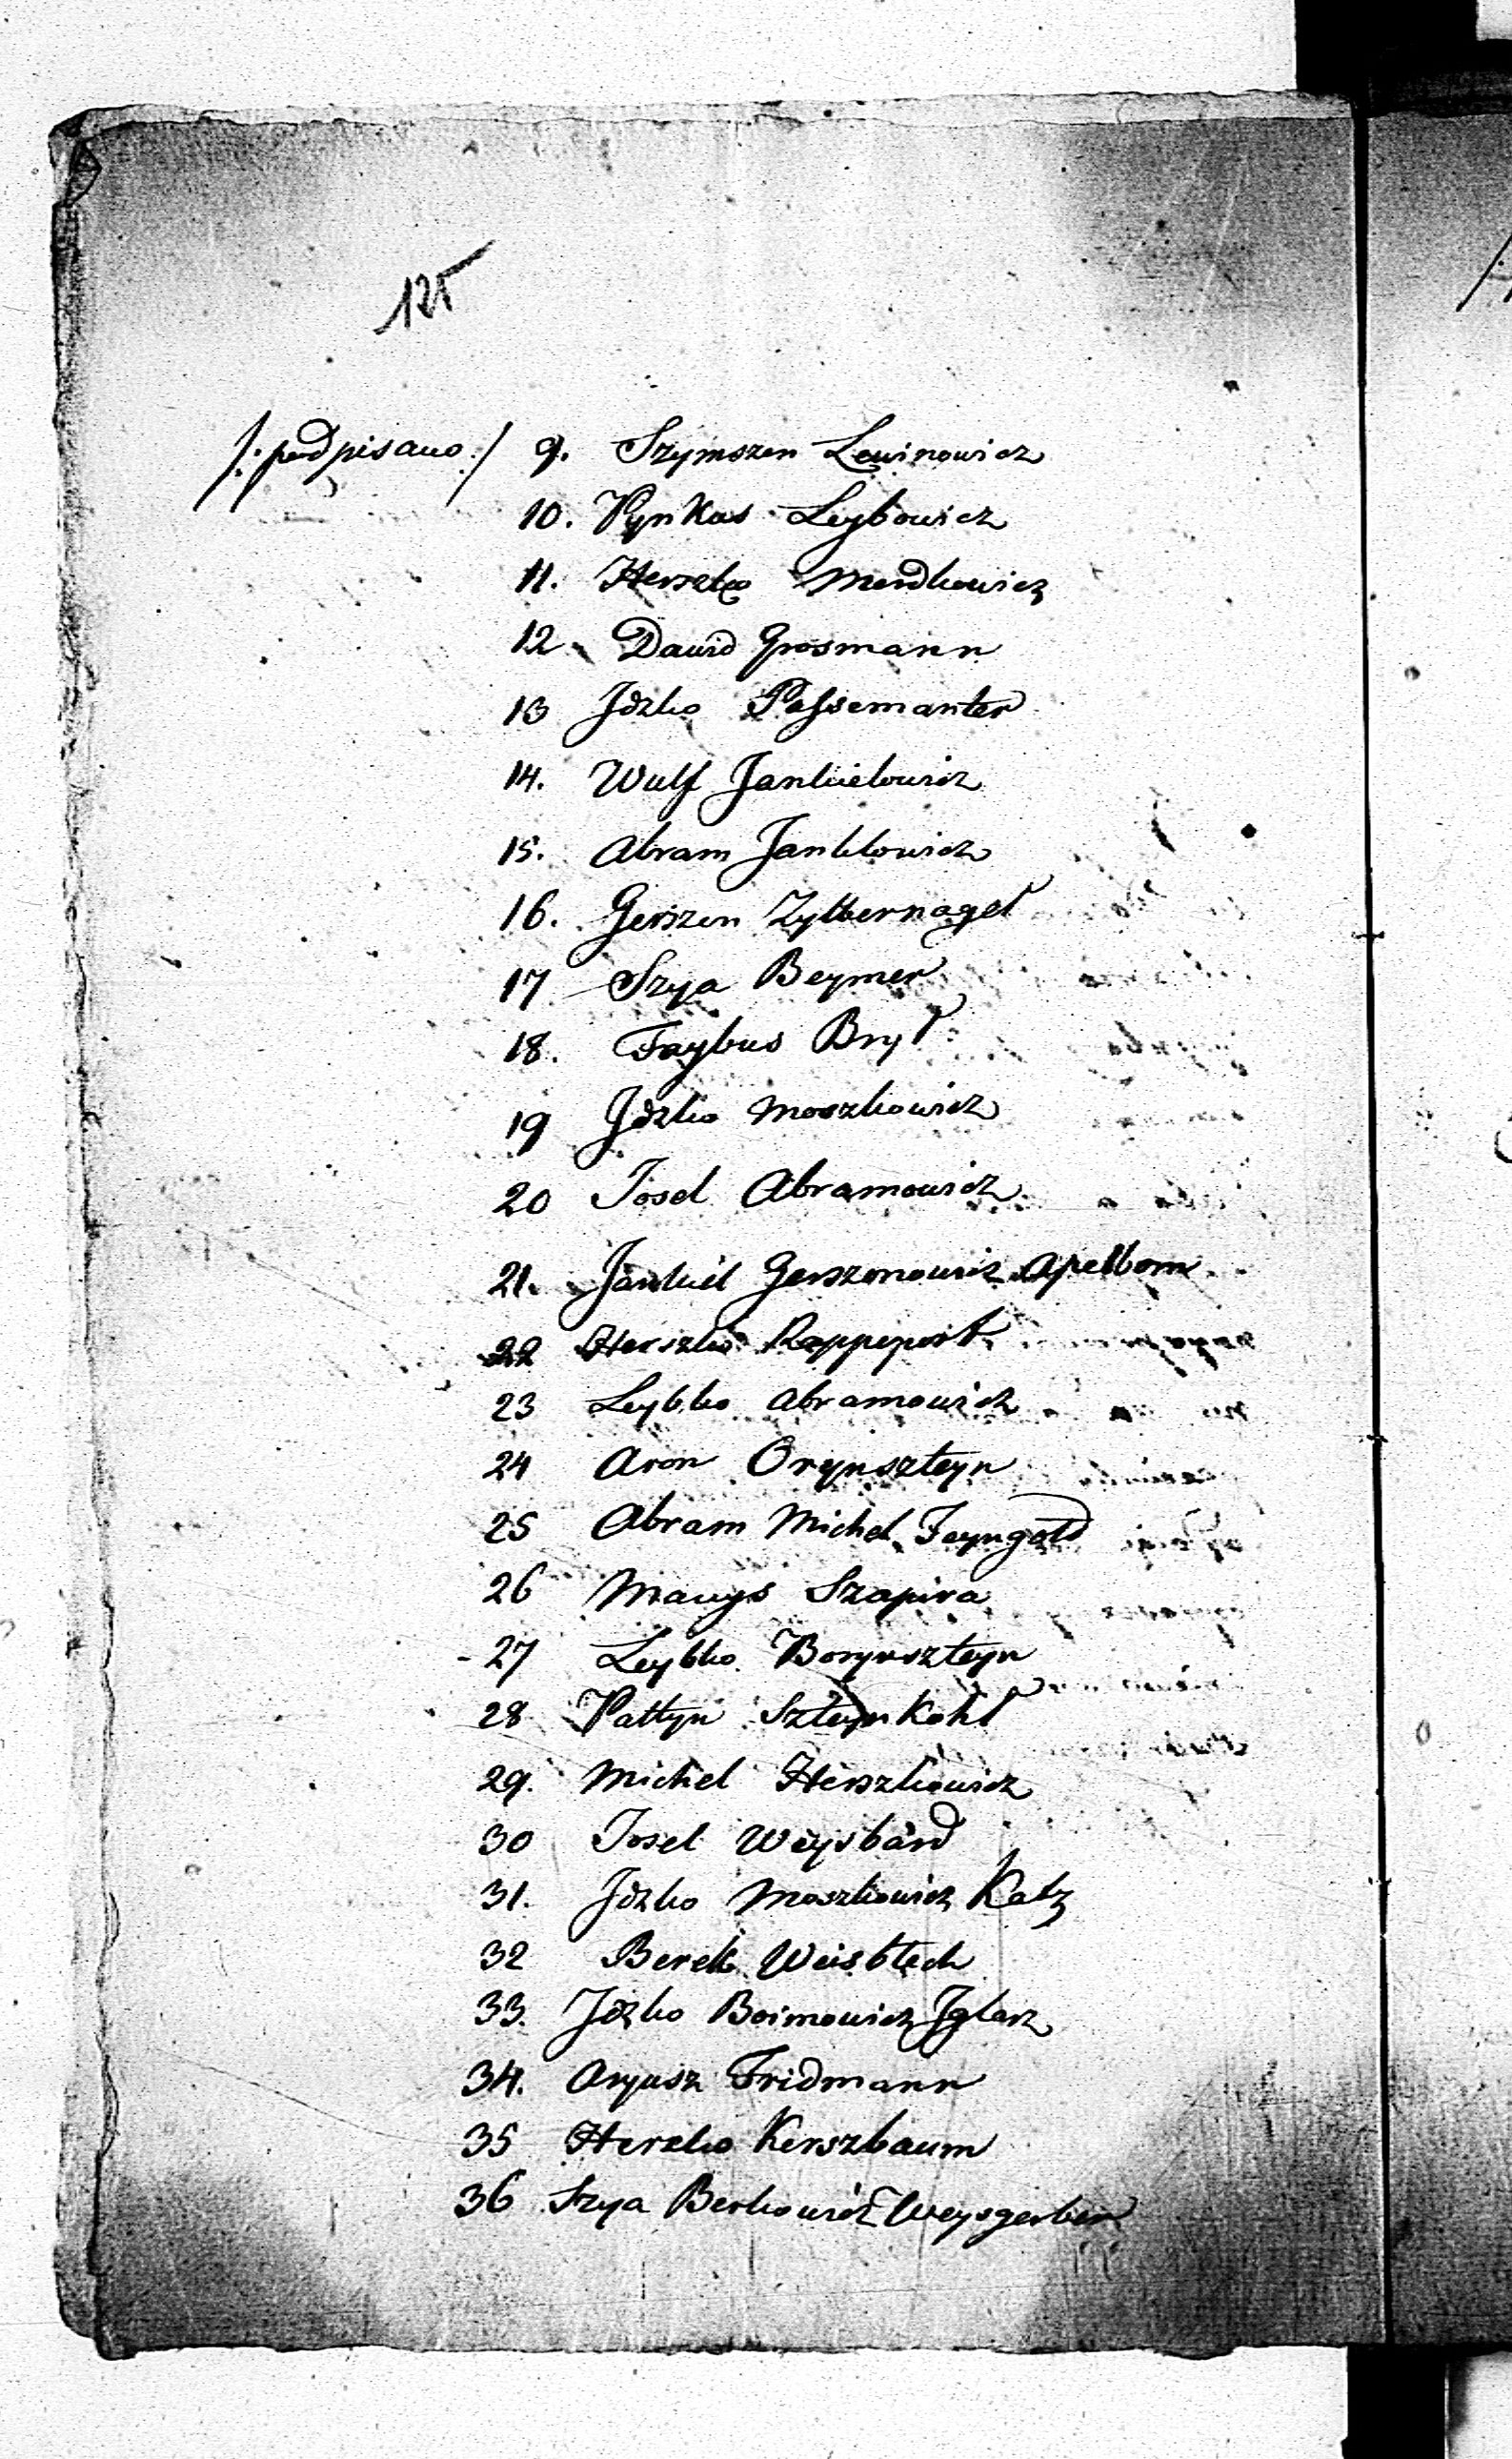 125
/: podpisano :/ 9. Szymszon Lewinowicz
10. Pynkas Leybowicz
11. Herszko Mordkowicz
12 Dawid Grosmann
13 Jdzko Passemanter
14. Wulf Jankielowicz
15. Abram Janklowicz
16. Gerszon Zylbernagel
17 Szya Beymer
18. Faybus Bryl
19 Jdzko Moszkowicz
20 Josel Abramowicz
21. Jankiel Gerszonowicz Apelbom
22 Herszko Rappeport
23 Leybko Abramowicz
24 Aron Orynszteyn
25 Abram Michel Feyngold
26 Manys Szapira
27 Leybko Borynszteyn
28 Paltyn Szteynkohl
29. Michel Herszkowicz
30 Josel Weysbard
31. Jdzko Moszkowicz Katz
32 Berek Weisblech
33. Jdzko Boimowicz Jglarz
34. Anyusz Fridmann
35 Herzko Kerszbaum
36 Szya Berkowicz Weysgerber